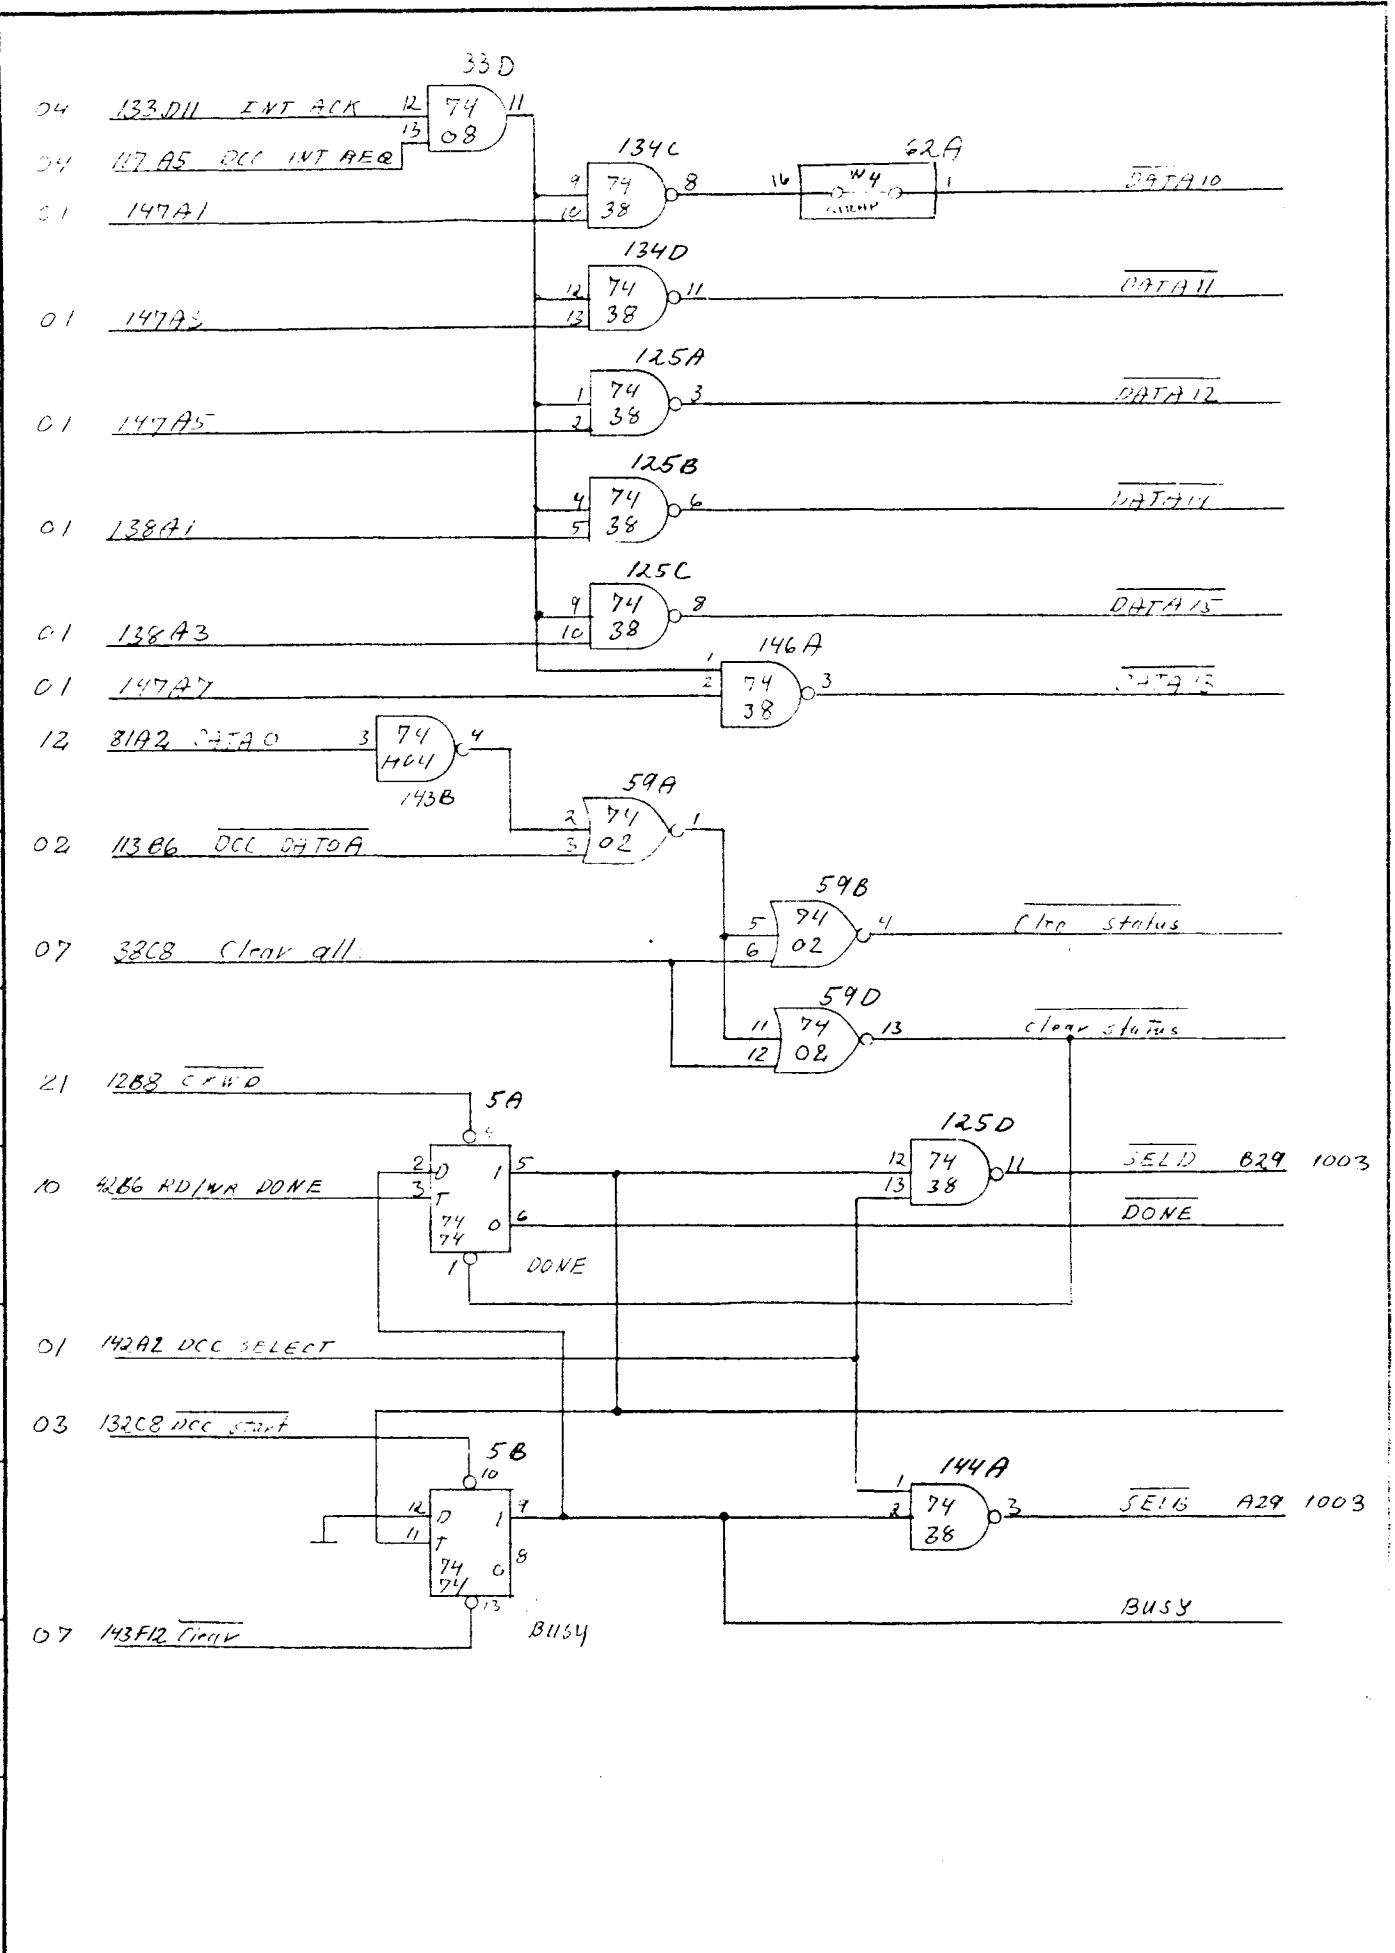 33D
04 133D11 INT ACK 12 74 11
13 08
04 117A5 DCC INT REQ
134C 62A
9 74 8 16 W4 1 DATA10
01 147A1 10 38 STRAP
134D
12 74 11 DATA11
01 147A3 13 38
125A
1 74 3 DATA12
01 147A5 2 38
125B
4 74 6 DATA14
01 138A1 5 38
125C
9 74 8 DATA15
01 138A3 10 38
146A
1
01 147A7 2 74 3 DATA13
38
12 81A2 DATA0 3 74 4
H04
143B 59A
2 74 1
02 113B6 DCC DATOA 3 02
59B
5 74 4 Clea status
07 38C8 Clear all 6 02
59D
11 74 13 clear status
12 02
21 12B8 CRWD
5A
4 125D
2 D 1 5 12 74 11 SELD B29 1003
10 42B6 RD/WR DONE 3 T 13 38
74 0 6 DONE
74
1 DONE
01 142A2 DCC SELECT
03 132C8 DCC start
5B
10 144A
1
12 D 1 9 2 74 3 SELB A29 1003
11 T 38
74 0 8
74
13 BUSY
07 143F12 Clear BUSY